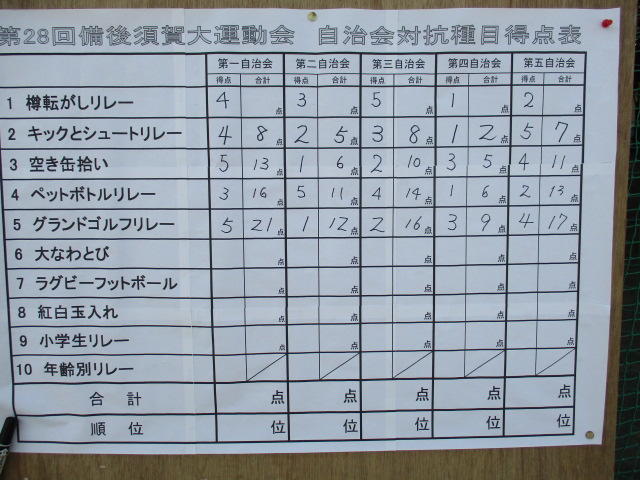 第28回備後須賀大運動会 自治会対抗種目得点表
第一自治会 第二自治会 第三自治会 第四自治会 第五自治会
得点 合計 得点 合計 得点 合計 得点 合計 得点 合計
1 樽転がしリレー 4 点 3 点 5 点 1 点 2 点
2 キックとシュートリレー 4 8点 2 5点 3 8点 1 2点 5 7点
3 空き缶拾い 5 13点 1 6点 2 10点 3 5点 4 11点
4 ペットボトルリレー 3 16点 5 11点 4 14点 1 6点 2 13点
5 グランドゴルフリレー 5 21点 1 12点 2 16点 3 9点 4 17点
6 大なわとび 点 点 点 点 点
7 ラグビーフットボール 点 点 点 点 点
8 紅白玉入れ 点 点 点 点 点
9 小学生リレー 点 点 点 点 点
10 年齢別リレー
合計 点 点 点 点 点
順位 位 位 位 位 位